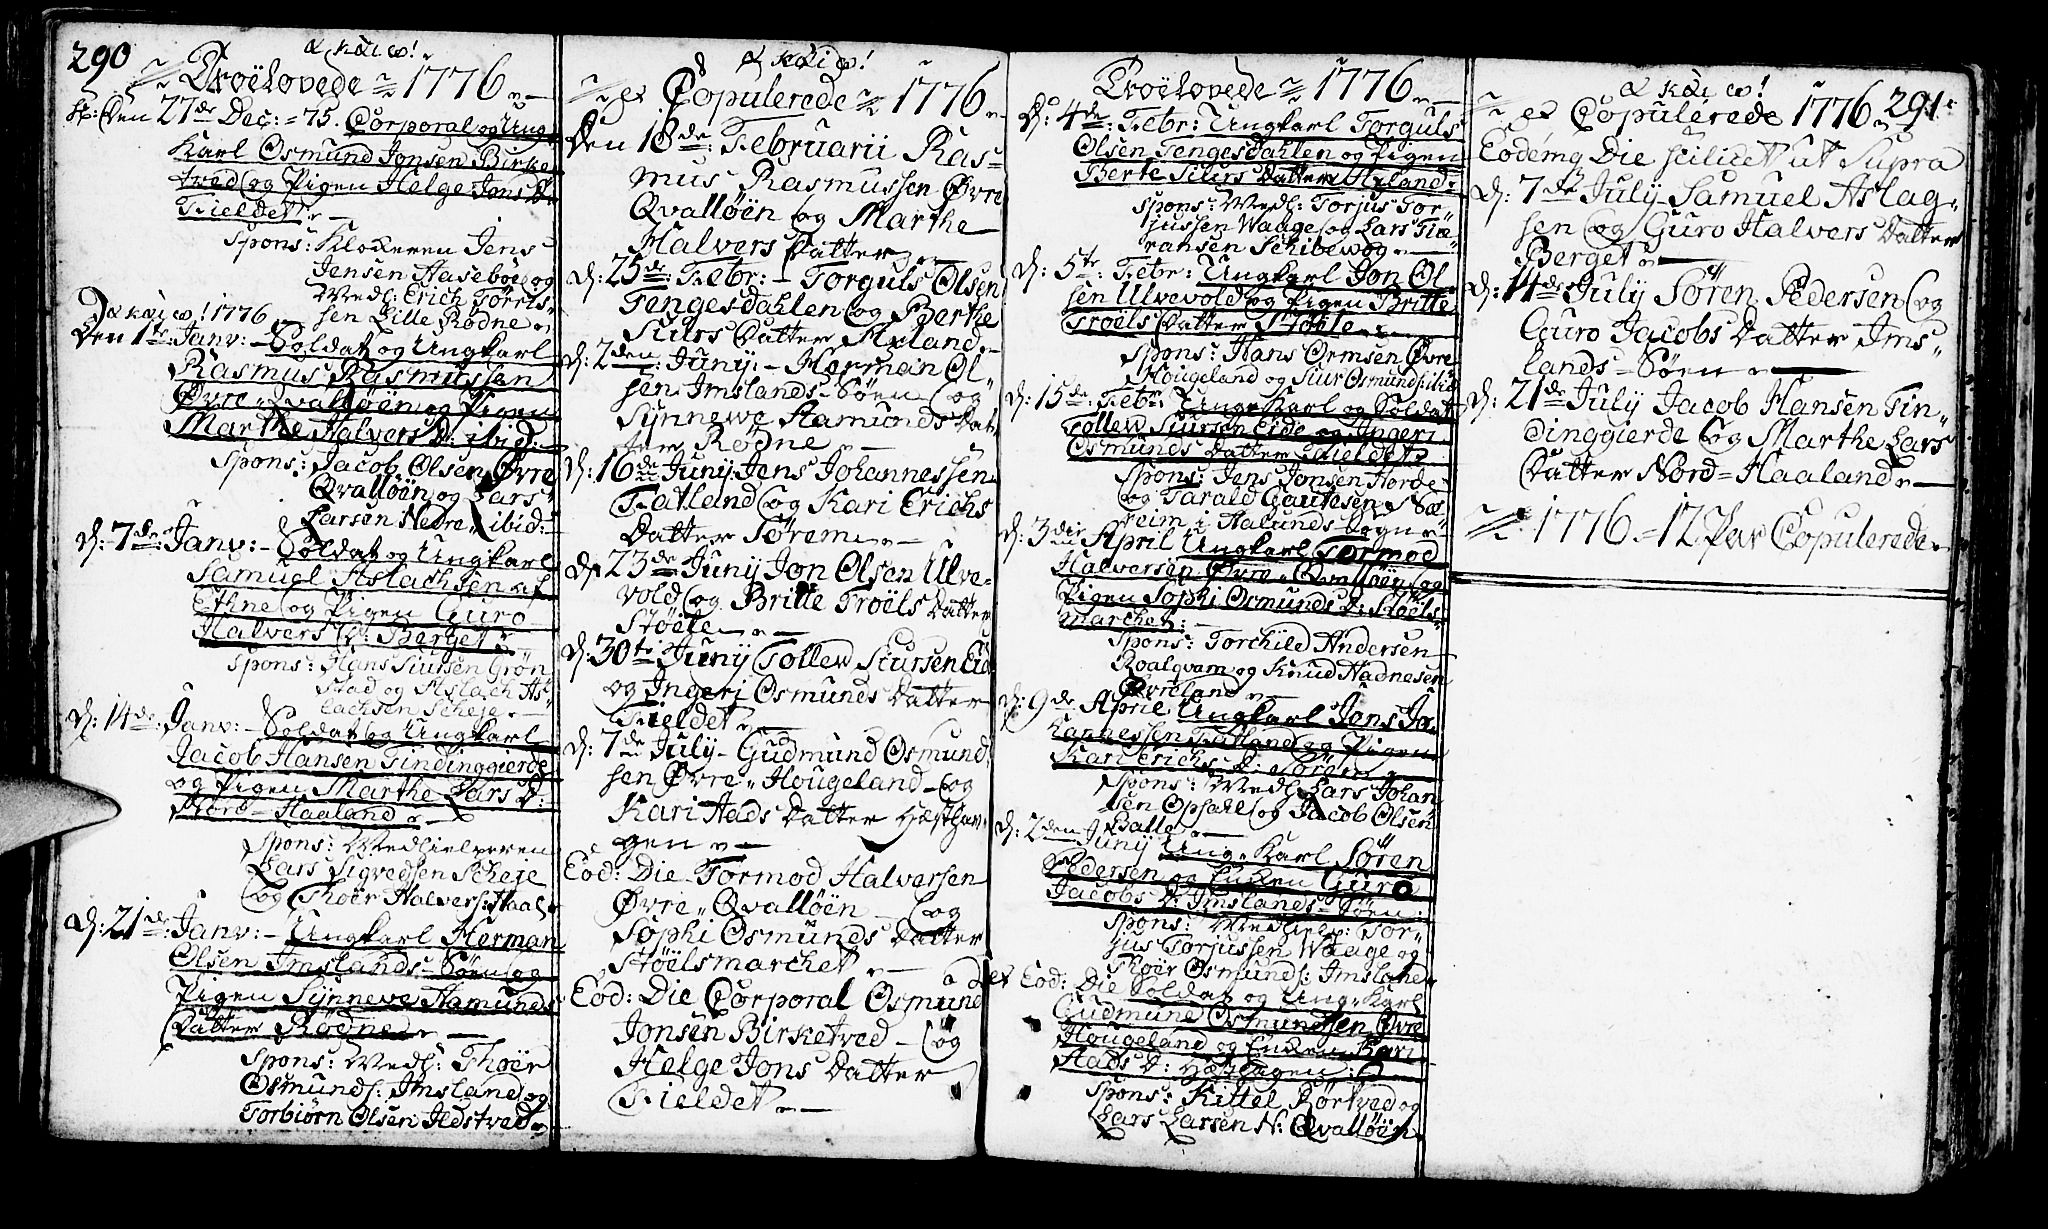 290
α και ω!
Troëlovede 1776
Den 27de Dec: = 75. Corporal og Ung¬
Karl Osmund Jonsen Birke¬
tved og Pigen Helge Jons D:
Fieldet
Spons: Klokeren Jens
Jensen Aasebøe og
Medh: Erich Tørris¬
sen Lille Rødne
α και ω! 1776
Den 1te Janv: - Soldat og Ungkarl
Rasmus Rasmussen
Øvre Qvalløen og Pigen
Marthe Halvers D: ibid:
Spons: Jacob Olsen Øvre
Qvalløen og Lars
Larsen Nedre ibid:
D: 7de Janv: - Soldat og Ungkarl
Samuel Aslachsen af
Ethne og Pigen Guro
Halvers D: Berget
Spons: Hans Siursen Grøn
Stad og Aslach As¬
lachsen Scheje
D: 14de Janv: - Soldat og Ungkarl
Jacob Hansen Tindinggierde
og Pigen Marthe Lars D:
Nord-Haaland
Spons: Medhielperen
Lars Sigvedsen Scheje
og Thoer Halvers: Haal
D: 21de Janv: - Ungkarl Herman
Olsen Imslands-Søen og
Pigen Synneve Aamunds
Datter Rødne
Spons: Medh: Thoer
Osmunds: Imsland og
Torbiørn Olsen Ilstved
α και ω!
et Copulerede 1776
Den 18de Februarii Ras¬
mus Rasmussen Øvre
Qvalløen og Marthe
Halvers Datter
D: 25de Febr: - Torguls Olsen
Tengesdahlen og Berthe
Siurs Datter Axland
D: 2den Juny: - Herman Ol¬
sen Imslands-Søen og
Synnewe Aamunds Dat¬
ter Rødne
D: 16de Juny Jens Johannessen
Fatland og Kari Erichs
Datter Sørem
D: 23de Juny Jon Olsen Ulve¬
vold og Britte Troëls Datter
Støele
D: 30te Juny Tollew Siursen Eide
og Ingeri Osmunds Datter
Fieldet
D: 7de July - Gudmund Osmund
sen Øvre Hougeland og
Kari Aads Datter Hæstham¬
gen
Eod: Die Tormod Halversen
Øvre Qvalløen og
Sophi Osmunds Datter
Støelsmarchet
Eod: Die Corporal Osmund
Jonsen Birketved og
Helge Jons Datter
Fieldet
Troëlovede 1776
D: 4de Febr: Ungkarl Torguls
Olsen Tengesdahlen og Pigen
Berte Siurs Datter Axland
Spons: Medh: Torjus Tor¬
jussen Waage og Lars Tiæ¬
ransen Schibewog
D: 5te Febr: Ungkarl Jon Ol¬
sen Ulvevold og Pigen Britte
Troëls Datter Støele
Spons: Hans Ormsen Øvre
Hougeland og Siur Osmunds: ibid
D: 15de Febr: Unge Karl og Soldat
Tollew Siursen Eide og Ingeri
Osmunds Datter Fieldet
Spons: Jens Jonsen Horde
og Tarald Gautesen Sæ¬
reim i Aalunds Sogn
D: 3die April Ungkarl Tormod
Halversen Øvre Qvalløen og
Pigen Sophi Osmunds D: Støels¬
marchet
Spons: Torchild Andersen
Roalqvam og Knud Aadnesen
Øvreland
D: 9de April Ungkarl Jens Jo¬
hannessen Fatland og Pigen
Kari Erichs D: Sørem
Spons: Medh: Lars Johan
sen Opsahl og Jacob Olsen
Balle
D: 2den Juny Ung-Karl Søren
Pedersen og Enken Guro
Jacobs D: Imslands-Søen
Spons: Medhielp: Tor¬
jus Torjussen Waage og
Thoer Osmunds: Imsland
Eod: Die Soldat og Ung-Karl
Gudmund Osmundsen Øvre
Hougeland og Enken Kari
Aads D: Hæsthagen
Spons: Kittel Rørtved og
Lars Larsen N: Qvalløen
α και ω!
et Copulerede 1776 291
Eodemq Die scilicet ut Supra
D: 7de July Samuel Aslag¬
sen og Guro Halvers Datter
Berget
D: 14de July Søren Pedersen og
Guro Jacobs Datter Ims¬
lands-Søen
D: 21de July Jacob Hansen Tin¬
dinggierde og Marthe Lars
Datter Nord-Haaland
1776 = 12 Par Copulerede